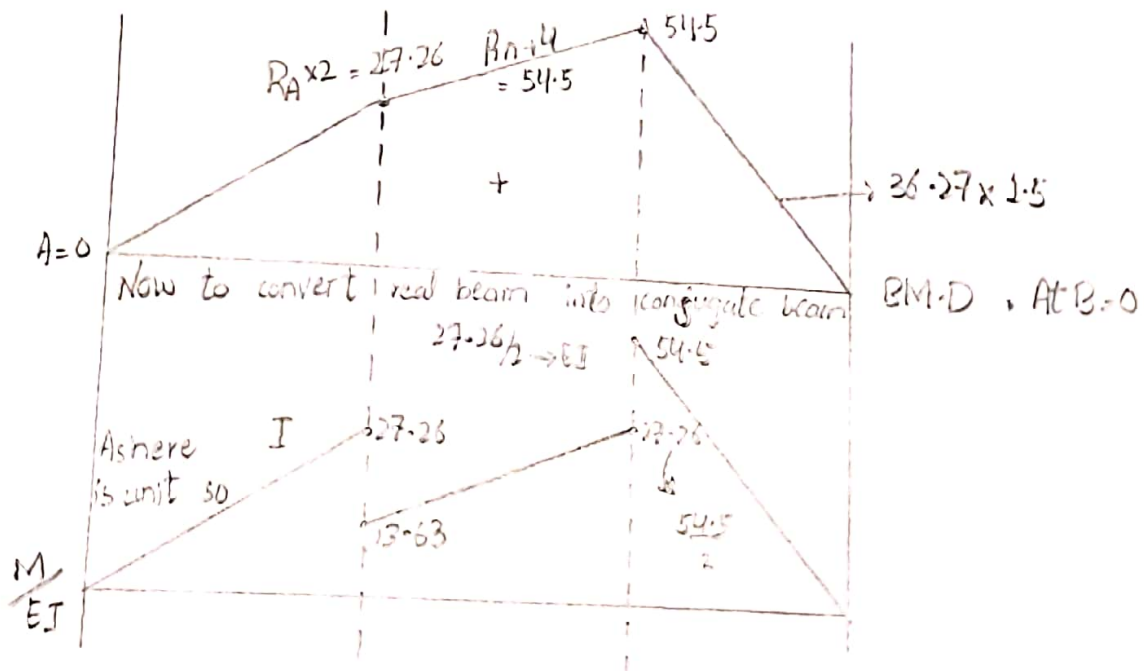 54.5
R_A×2 = 27.26
= 54.5
+
→ 36.27 × 1.5
A=0
Now to convert real beam into conjugate beam
BM.D , At B=0
27.26/2 → EI
54.5
As here I
is unit so
27.26
27.26
13.63
54.5
2
M
EI